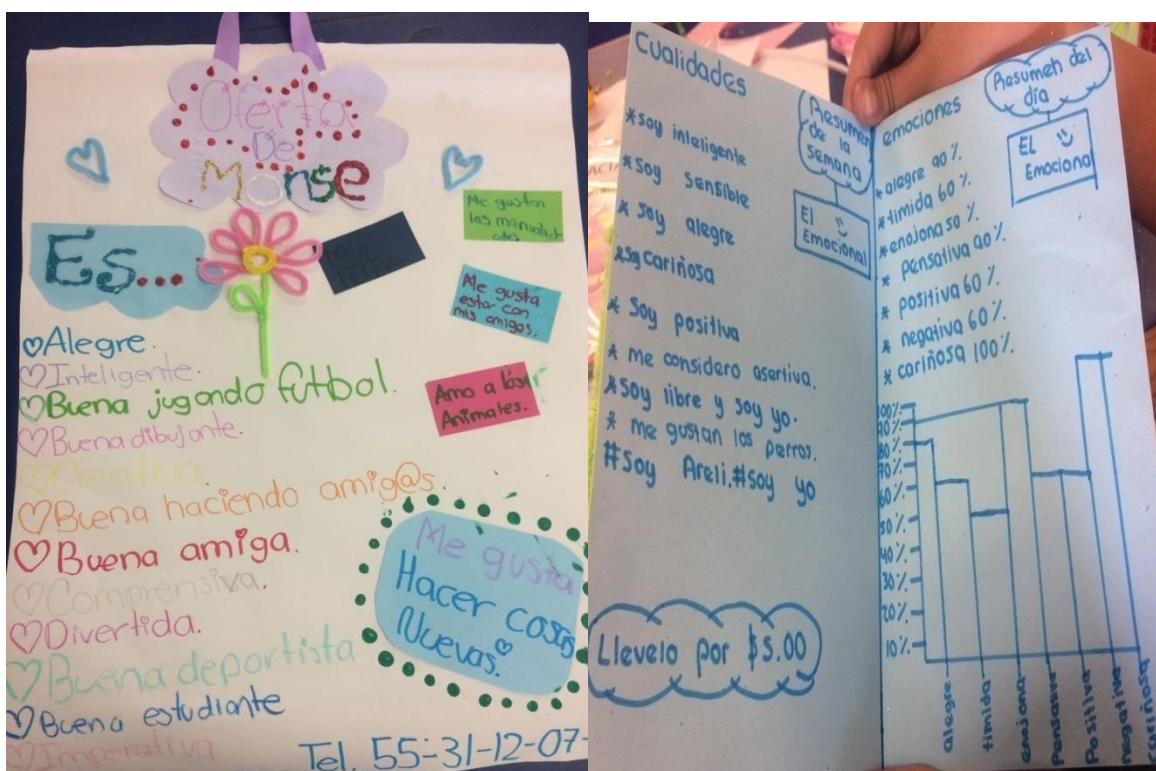 Oferta
De
Monse
Es...
Me gustan
las manualid
ades
Me gusta
estar con
mis amigos.
Amo a los
Animales.
Alegre.
Inteligente.
Buena jugando futbol.
Buena dibujante.
Creativa.
Buena haciendo amig@s.
Buena amiga.
Comprensiva.
Divertida.
Buena deportista
Buena estudiante
Imperativa
Me gusta
Hacer cosas
Nuevas.
Tel. 55-31-12-07-
Cualidades
Resumen
de la
semana
El
Emocional
*soy inteligente
*soy sensible
* soy alegre
*soy cariñosa
* soy positiva
* me considero asertiva.
*soy libre y soy yo.
* me gustan los perros.
#soy Areli.#soy yo
Llevelo por $5.00
emociones
Resumen del
día
El
Emocional
*alegre 90%
*timida 60%
*enojona 50%
* pensativa 90%
* positiva 60%
* negativa 60%.
* cariñosa 100%.
100%
90%
80%
70%
60%
50%
40%
30%
20%
10%
alegre
timida
enojona
Pensativa
Positiva
negativa
cariñosa